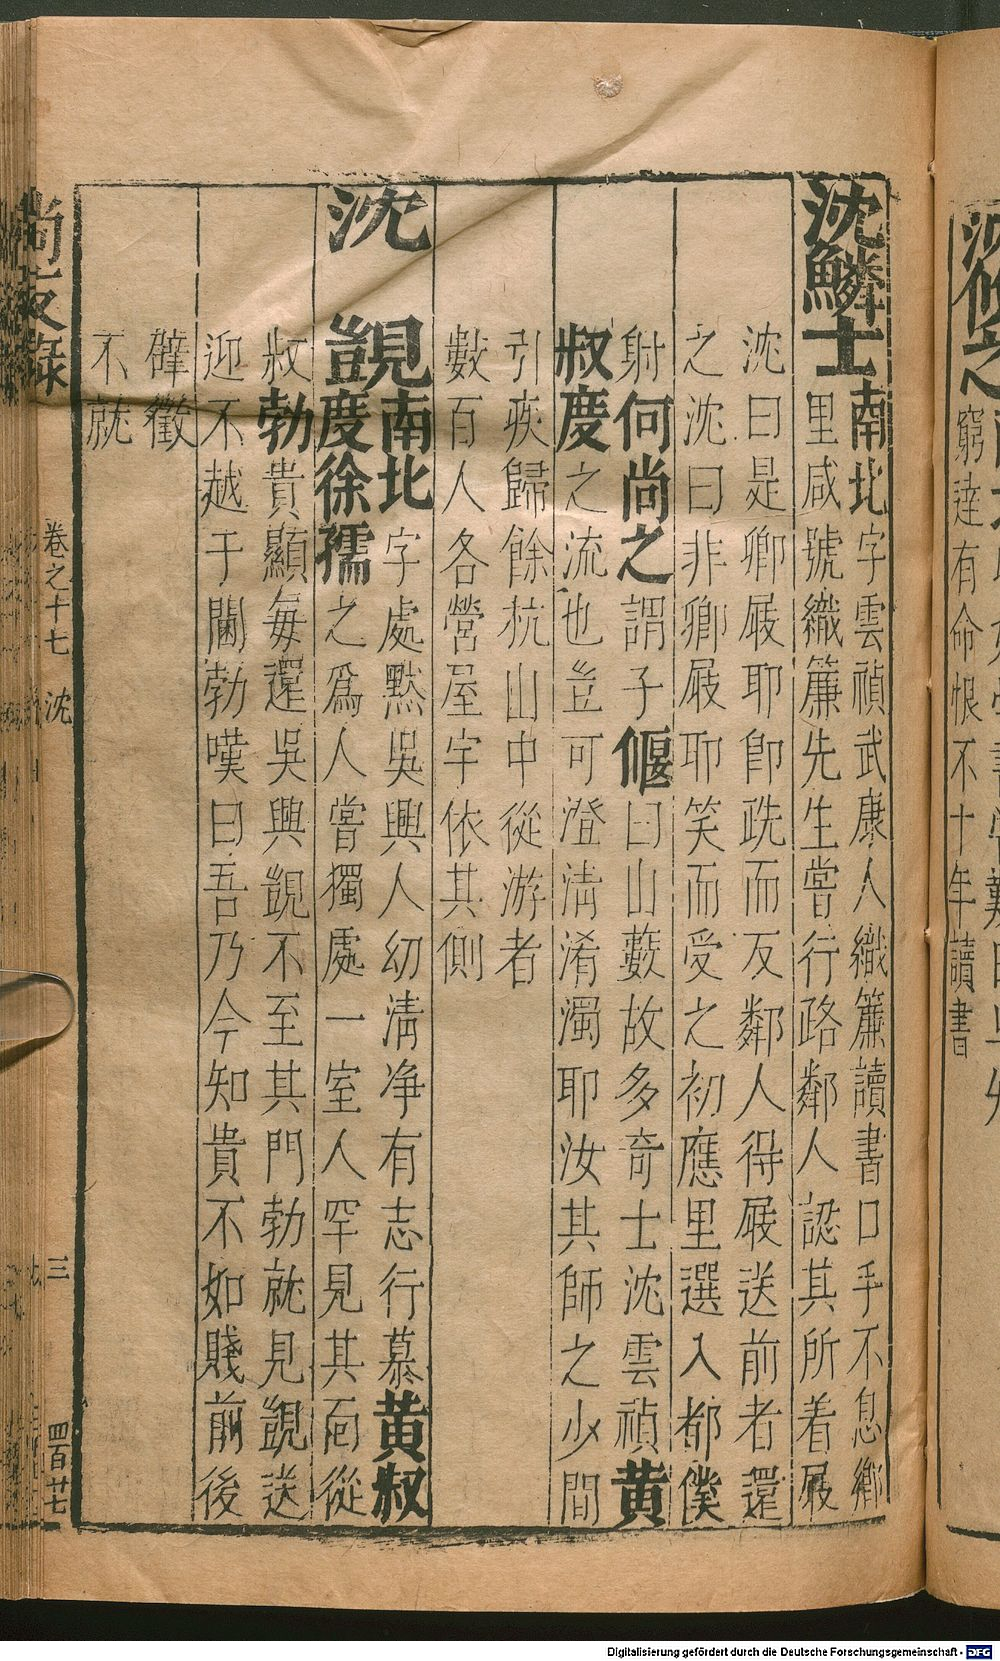 沈鱗士南北字雲禎武康人織簾讀書口手不息鄉
里咸號織簾先生嘗行路鄰人認其所着屐
沈曰是卿屐耶卽跣而反鄰人得屐送前者還
之沈曰非卿屐耶笑而受之初應里選入都僕
射何尚之謂子偃曰山藪故多奇士沈雲禎黃
叔度之流也豈可澄淸淆濁耶汝其師之少間
引疾歸餘杭山中從游者
數百人各營屋宇依其側
沈覬南北字處默吳興人幼淸净有志行慕黃叔
度徐孺之爲人嘗獨處一室人罕見其面從
叔勃貴顯每還吳興覬不至其門勃就見覬送
迎不越于閫勃嘆曰吾乃今知貴不如賤前後
辟徵
不就
尚友錄
卷之十七 沈
三
四百廿七
窮達有命恨不十年讀書
Digitalisierung gefördert durch die Deutsche Forschungsgemeinschaft - DFG